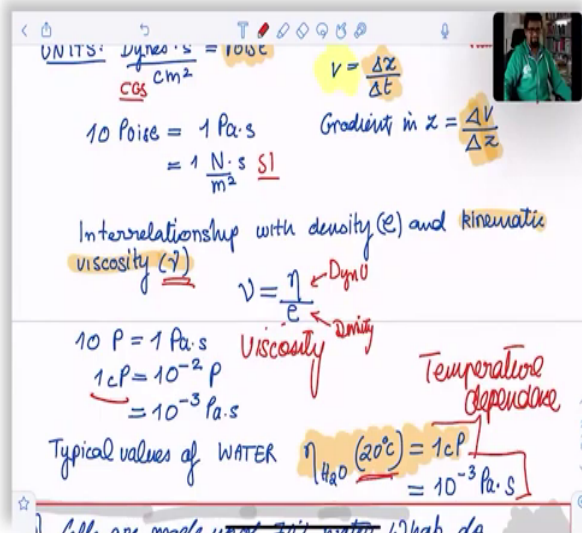 UNITS: Dynes·s/cm² = Poise
CGS
v = Δx/Δt
10 Poise = 1 Pa·s
= 1 N·s/m² SI
Gradient in z = Δv/Δz
Interrelationship with density (ρ) and kinematic
viscosity (ν)
ν = η/ρ
Density
Viscosity
10 P = 1 Pa·s
1cP = 10⁻² P
= 10⁻³ Pa·s
Temperature
dependance
Typical values of WATER η H₂O (20°C) = 1cP
= 10⁻³ Pa·S